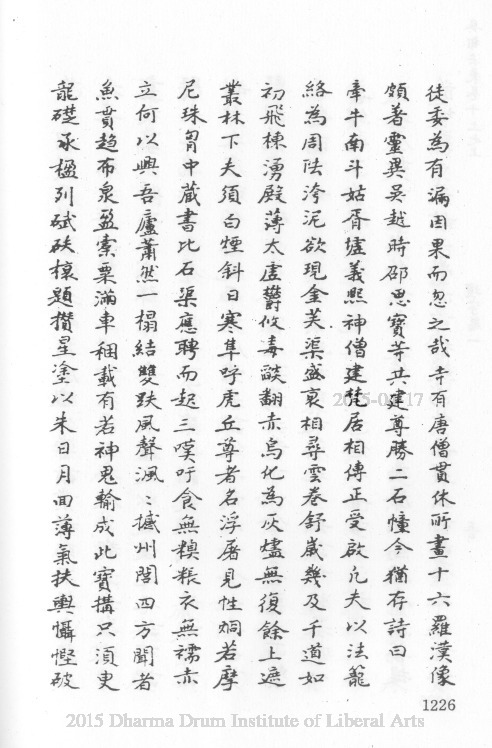 徒委為有漏因果而忽之哉寺有唐僧貫休所畫十六羅漢像
頗著靈異吳越時邵思寶等共建尊勝二石幢今猶存詩曰
牽牛南斗姑胥墟義熙神僧建梵居相傳正受啟凡夫以法籠
絡為周阹洿泥欲現金芙渠盛衰相尋雲卷舒歲幾及千道如
初飛棟湧殿薄太虛欝攸毒燄翻赤烏化為灰燼無復餘上遮
叢林下夫須白煙斜日寒隼呼虎丘尊者名浮屠見性炯若摩
尼珠胷中蔵書比石渠應聘而起三嘆吁食無糗粻衣無襦赤
立何以興吾廬蕭然一榻結雙趺風聲渢〻撼州閭四方聞者
魚貫趨布泉盈橐粟滿車稛載有若神鬼輸成此寶搆只須臾
龍礎承楹列碔砆榱題攢星塗以朱日月回薄氣扶輿懾慳破
1226
2015-04-17
2015 Dharma Drum Institute of Liberal Arts